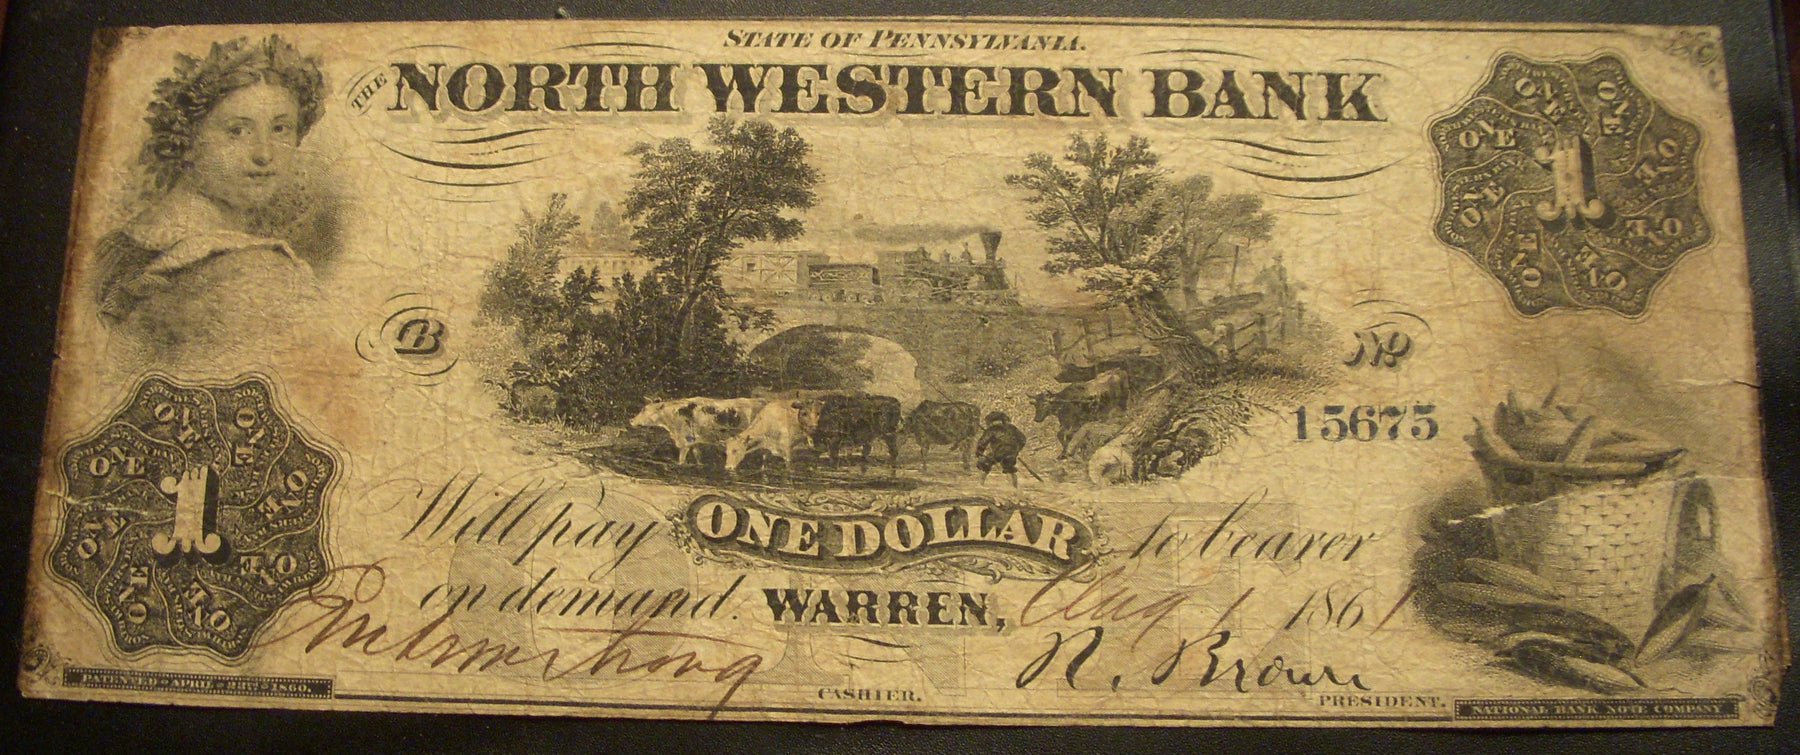 STATE OF PENNSYLVANIA.
THE NORTH WESTERN BANK
1
ONE ONE ONE ONE ONE ONE ONE ONE
B
No
15675
1
ONE ONE ONE ONE ONE ONE ONE ONE
Will pay ONE DOLLAR to bearer
on demand. WARREN, Aug 1 1861
Armstrong
N. Brown
CASHIER.
PRESIDENT.
PATENTED APRIL 1860.
NATIONAL BANK NOTE COMPANY